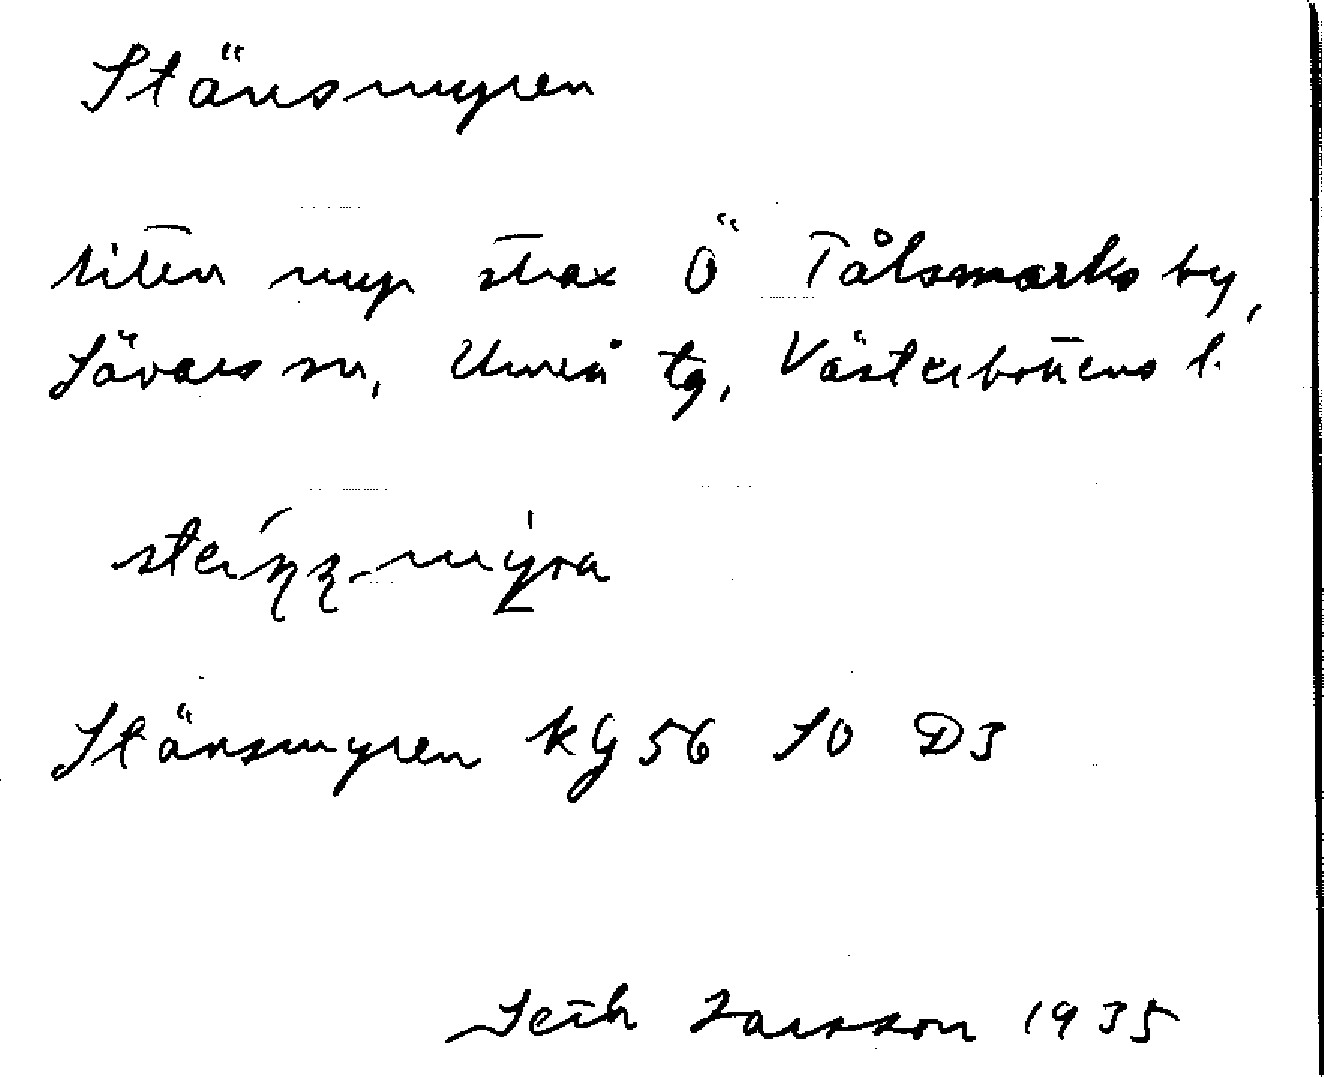 Stänsmyren
liten myr strax Ö Tålsmarks by,
Sävars sn, Umeå tg, Västerbottens l.
Stänsmyren kg 56 SO D3
Seth Larsson 1935